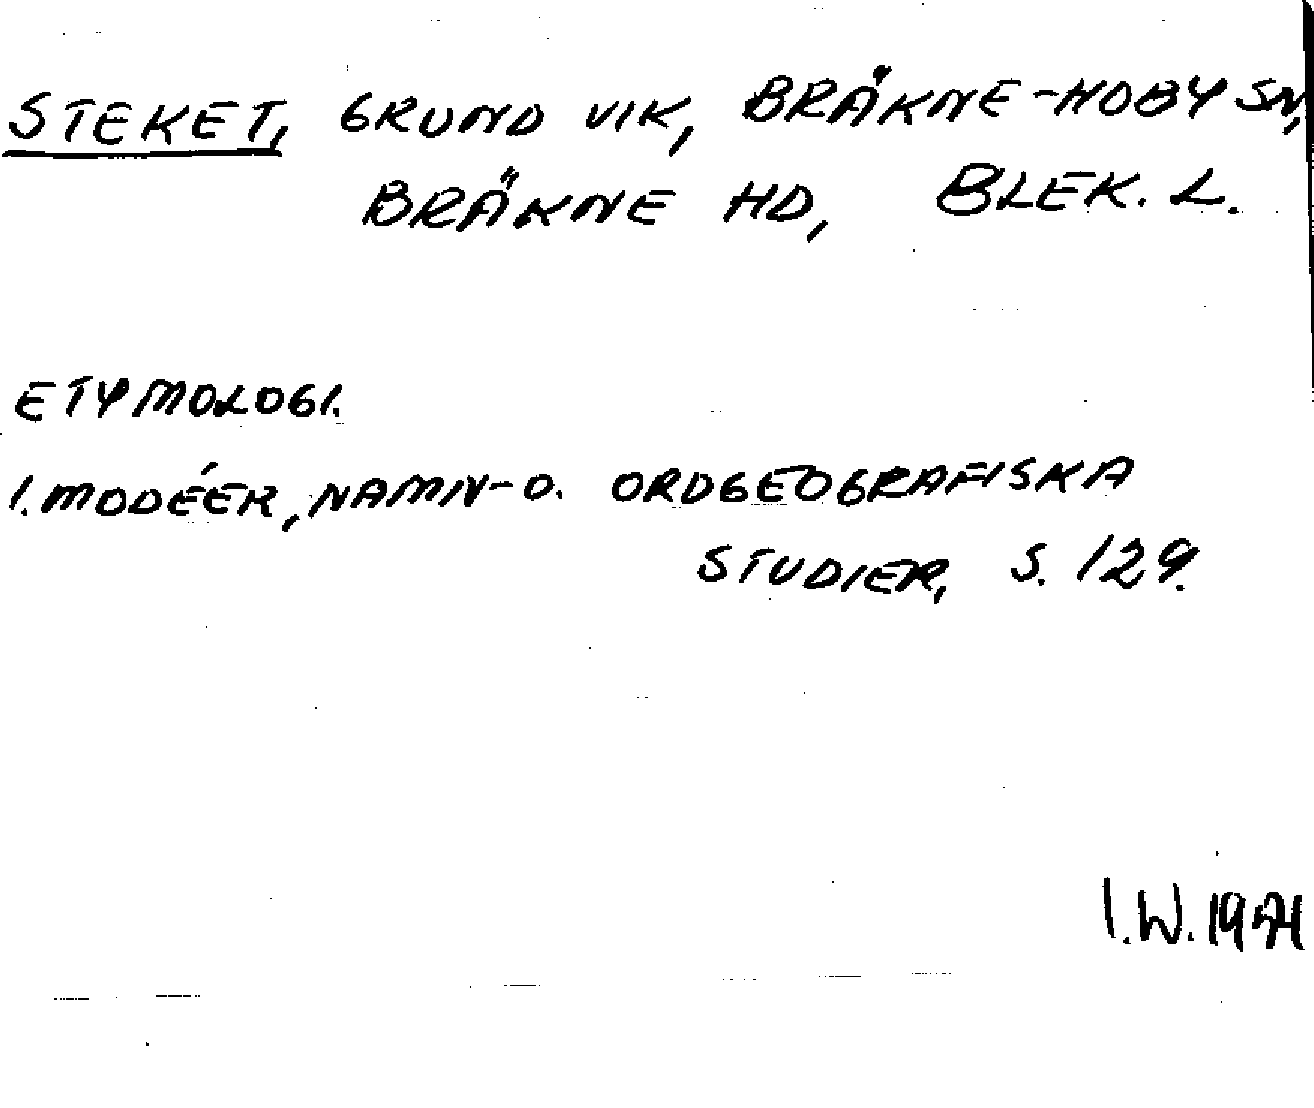 STEKET, GRUND VIK, BRÄKNE-HOBY SN,
BRÄKNE HD, BLEK. L.
ETYMOLOGI.
I. MODÉER, NAMN- O. ORDGEOGRAFISKA
STUDIER, S. 129.
I.W. 1971